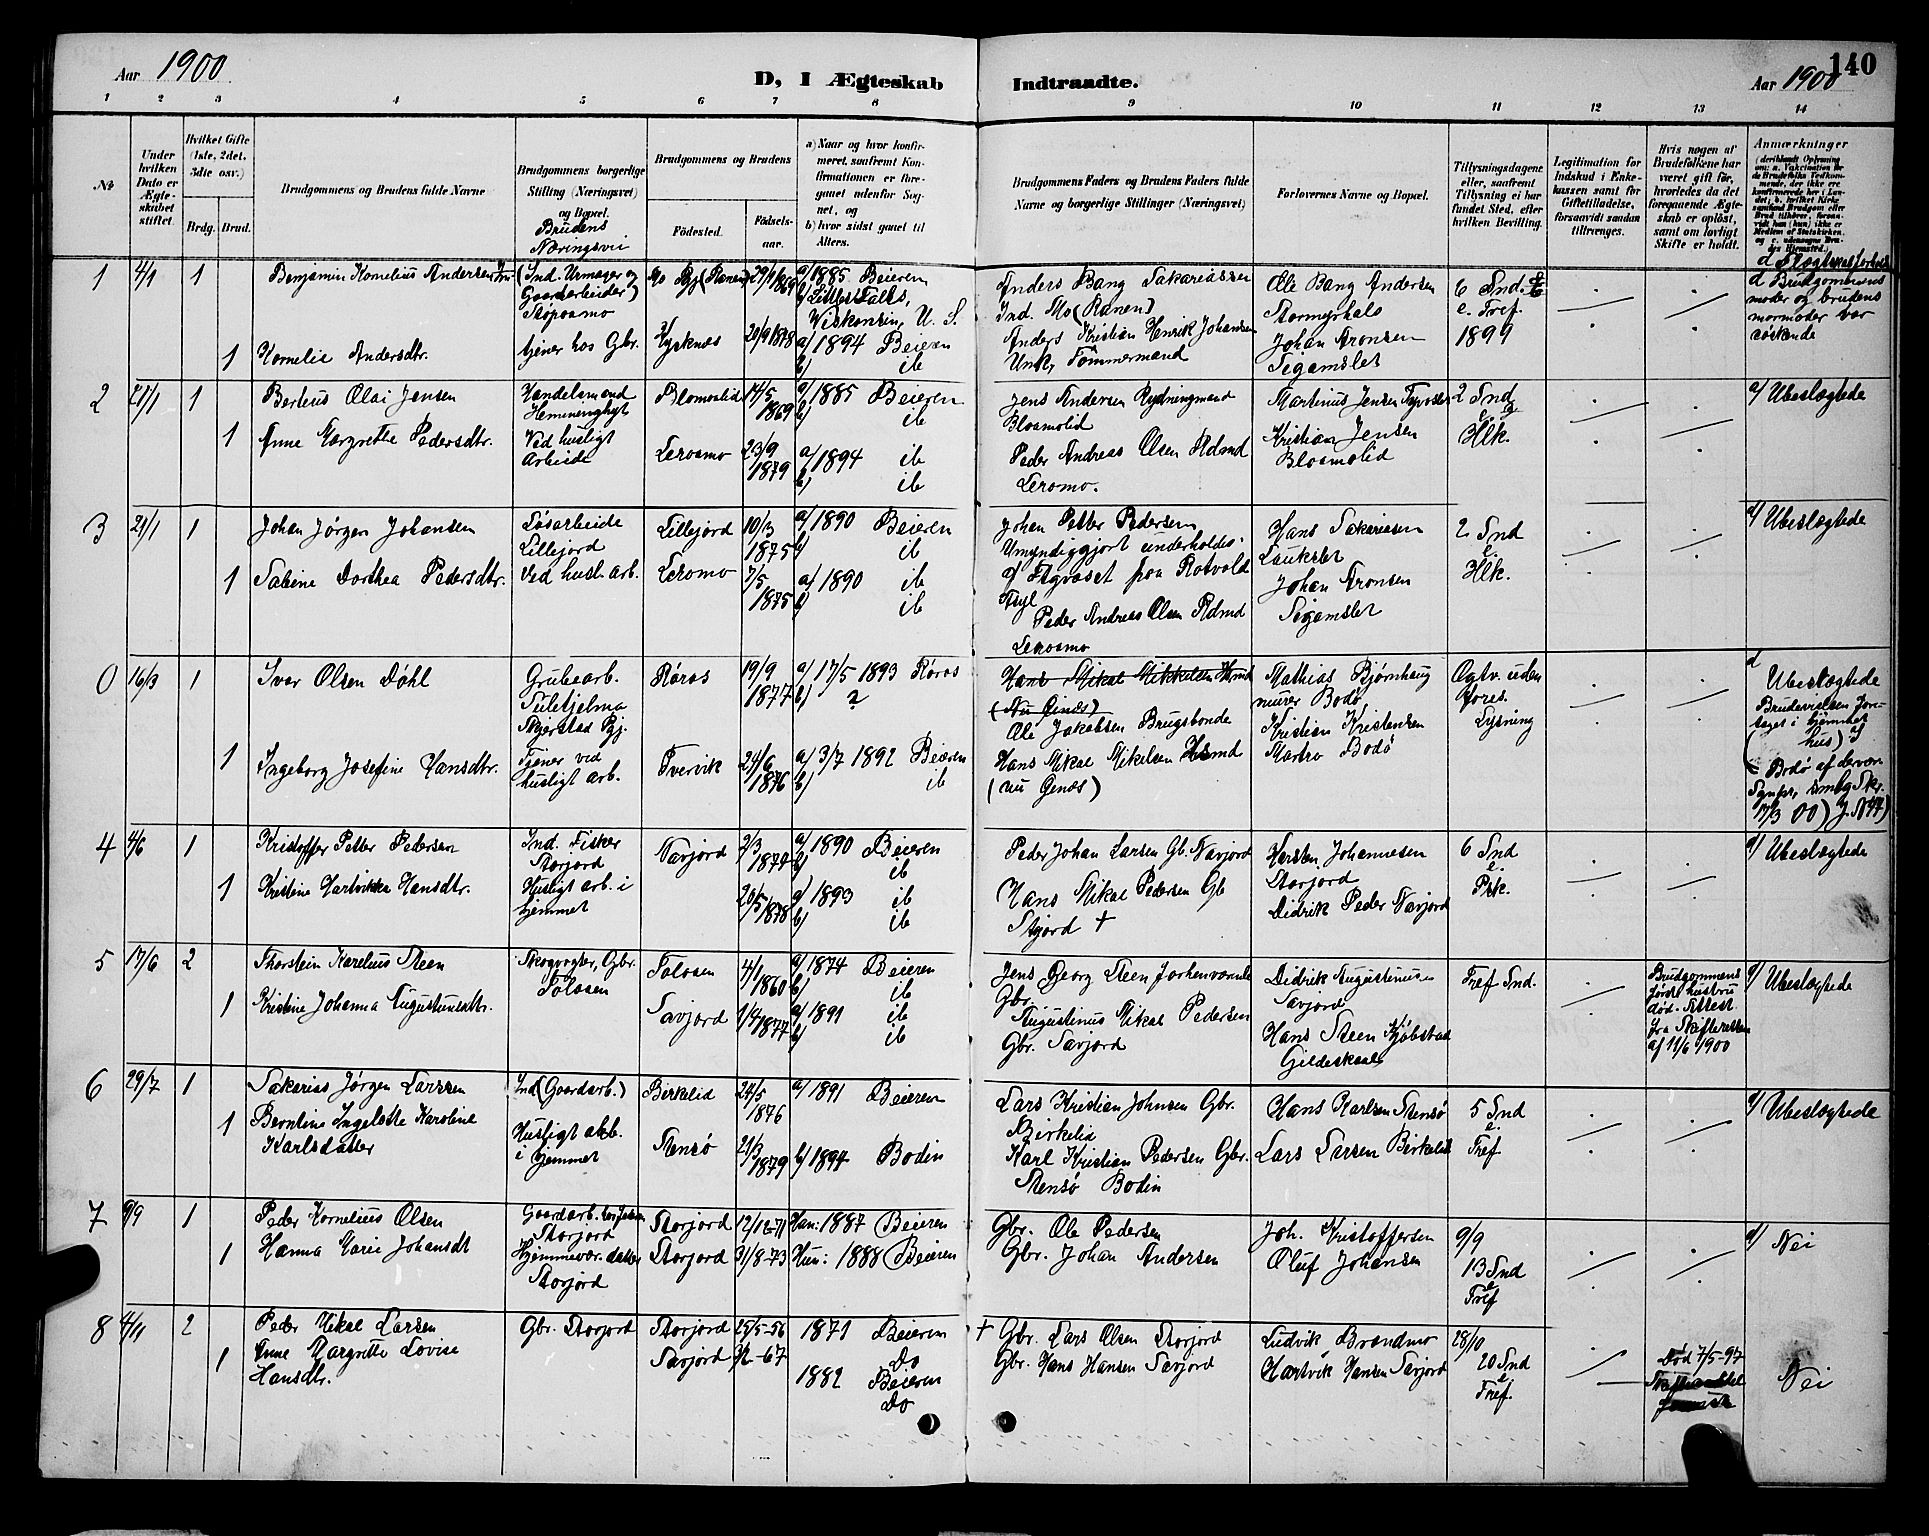 Aar 1900.
D, I Ægteskab Indtraadte.
Aar 1900
140
1 2 3 4 5 6 7 8 9 10 11 12 13 14
No
Under hvilken Dato er Ægteskabet stiftet.
Hvilket Gifte (1ste, 2det, 3die osv.)
Brdg. Brud.
Brudgommens og Brudens fulde Navne
Brudgommens borgerlige Stilling (Næringsvei) og Bopæl.
Brudens Næringsvei
Brudgommens og Brudens
Fødested. Fødselsaar.
a) Naar og hvor konfirmeret, saafremt Konfirmationen er foregaaet udenfor Sognet, og
b) hvor sidst gaaet til Alters.
Brudgommens Faders og Brudens Faders fulde Navne og borgerlige Stillinger (Næringsvei)
Forlovernes Navne og Bopæl.
Tillysningsdagene eller, saafremt Tillysning ei har fundet Sted, efter hvilken Bevilling.
Legitimation for Indskud i Enkekassen samt for Giftetilladelse, forsaavidt saadan tiltrænges.
Hvis nogen af Brudefolkene har været gift før, hvorledes da det foregaaende Ægteskab er opløst, samt om lovligt Skifte er holdt.
Anmærkninger
1 4/1 1 Benjamin Kornelius Andersen
Ind. Urmager og Gaardarbeider
Mo Pgj (Ranen) 29/1 1869
a/ 1885 Beieren
b/ Little Falls, Wiskonsin, U. S.
Anders Bang Sakariassen
Ind. Mo (Ranen)
Ole Bang Andersen
Stormyrhals
6 Snd. e. Tref. 1899
d Brudgommens moder og brudens mormoder var søskende
1 Kornelia Andersdtr. tjener hos Gbr. Kysknes 20/9 1878
a/ 1894 Beieren
b/ ib
Anders Kristian Henrik Johansen
Unk, Tømmermand
Johan Aronsen
Tegamslet
2 21/1 1 Berteus Olai Jensen
Handelsmand
Blomolid 14/5 1869
a/ 1885 Beieren
b/ ib
Jens Andersen Rydningmand
Bloamolid
Martinus Jensen
2 Snd e. Hlk.
a/ Ubeslægtede
1 Anne Margrethe Pedersdtr.
Ved husligt Arbeide
Leiramo 23/9 1879
a/ 1894 ib
b/ ib
Peder Andreas Olsen
Leiramo.
Kristian Jensen
Bloamolid
3 21/1 1 Johan Jørgen Johansen
Løsarbeide
Lillejord
Lillejord 10/3 1875
a/ 1890 Beieren
b/ ib
Johan Petter Pedersen
Umyndiggjort underholdes
af Ftgvæset paa Rotvold
Asyl
Hans Sakariasen
Laukslet
2 Snd e. Hlk.
a/ Ubeslægtede
1 Sabine Dorthea Pedersdtr. Ved husl. arb. Leiramo 7/5 1875
a/ 1890 ib
b/ ib
Peder Andreas Olsen
Johan Aronsen
Tegamslet
0 16/3 1 Ivar Olsen Døhl
Grubearb.
Sulitjelma
Skjerstad Pgj.
Røros 19/9 1877
a/ 17/5 1893 Røros
b/ ?
Hans Mikal Mikkelsen Hsmd
(nu Ginæs)
Ole Jakobsen Brugsbonde
Mathias Bjørnhaug
murer Bodø
Ogtv. uden fores. Lysning
d Ubeslægtede
Brudevielsen foretaget i hjemmet
1 Ingeborg Josefine Hansdtr.
Tjener ved husligt arb.
Tvervik 24/6 1876
a/ 3/7 1892 Beieren
b/ ib
Hans Mikal Mikelsen Hsmd
(nu Ginæs)
Kristian Kristensen
Matro Bodø
Bodø af derværende
17/3 00) J. N 44)
4 4/6 1 Kristoffer Petter Pedersen
Ind. Fisker
Storjord
Navjord 2/3 1874
a/ 1890 Beieren
b/ ib
Peder Johan Larsen Gb. Navjord
Karsten Johannesen
Storjord
6 Snd e. Psk.
a/ Ubeslægtede
1 Kristine Hartvikka Hansdtr.
Husligt arb. i hjemmet
20/5 1878
a/ 1893 ib
b/ ib
Hans Mikal Pedersen Gb
Stjord †
Didrik Peder Navjord
5 17/6 2 Thorstein Karelius Steen
Skogvogter, Gbr.
Tolaasen
Tolaasen 4/1 1860
a/ 1874 Beieren
b/ ib
Jens Georg Steen forhenværende
Gbr.
Didrik Augustinusen
Savjord
Tref Snd.
Brudgommens første hustru død. Attest fra Skifteretten af 11/6 1900
a/ Ubeslægtede
1 Kristine Johanna Augustinusdtr. Savjord 1/4 1877
a/ 1891 ib
b/ ib
Augustinus Mikal Pedersen
Gbr. Savjord
Hans Steen Kjøbstad
Gildeskaal
6 29/7 1 Sakarias Jørgen Larssen
Ind (Gaardarb.)
Birkelid 24/5 1876
a/ 1891 Beieren
Lars Kristian Johnsen Gbr.
Birkelid
Hans Karlsen Stensø
5 Snd e. Tref
a/ Ubeslægtede
1 Berntine Ingelette Karoline Karlsdatter
Husligt arb. i hjemmet
Stensø 21/3 1879
b/ 1894 Bodin
Karl Kristian Pedersen Gbr.
Stensø Bodin
Lars Larsen Birkelid
7 9/9 1 Peder Kornelius Olsen
Gaardarb.
Storjord
Storjord 12/12-71
Han: 1887 Beieren
Gbr. Ole Pedersen
Joh. Kristoffersen
9/9
13 Snd e Tref
a/ Nei
1 Hanna Marie Johansdt
Hjemmevær. datter
Storjord
Storjord 31/8-73
Hun: 1888 Beieren
Gbr. Johan Andersen
Oluf Johansen
8 4/11 2 Peder Mikal Larsen
Gbr. Storjord
Storjord 25/5-56
1871 Beieren
Do
† Gbr. Lars Olsen Storjord
Ludvik Brandmo
28/10
20 Snd e Tref.
Død 7/5-97
Nei
1 Anne Margrette Lovise Hansdtr.
Savjord 3/2-67
1882 Beieren
Do
Gbr. Hans Hansen Savjord
Hartvik Hansen Savjord